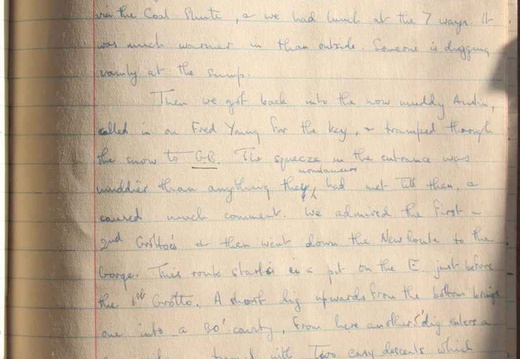 via the Coal Shute, & we had lunch at the 7 ways. It
was much warmer in than outside. Someone is digging
vainly at the sump.
Then we got back into the now muddy Austin,
called in on Fred Young for the key, & tramped through
the snow to GB. The squeeze in the entrance was
muddier than anything they had met till then, &
caused much comment. We admired the First &
2nd Grottoes & then went down the New Route to the
Gorge. This route starts in a pit on the E. just before
the 1st Grotto. A short dig upwards from the bottom brings
one into a 30' cavity, from here another dig enters a
tunnel with Two easy descents which